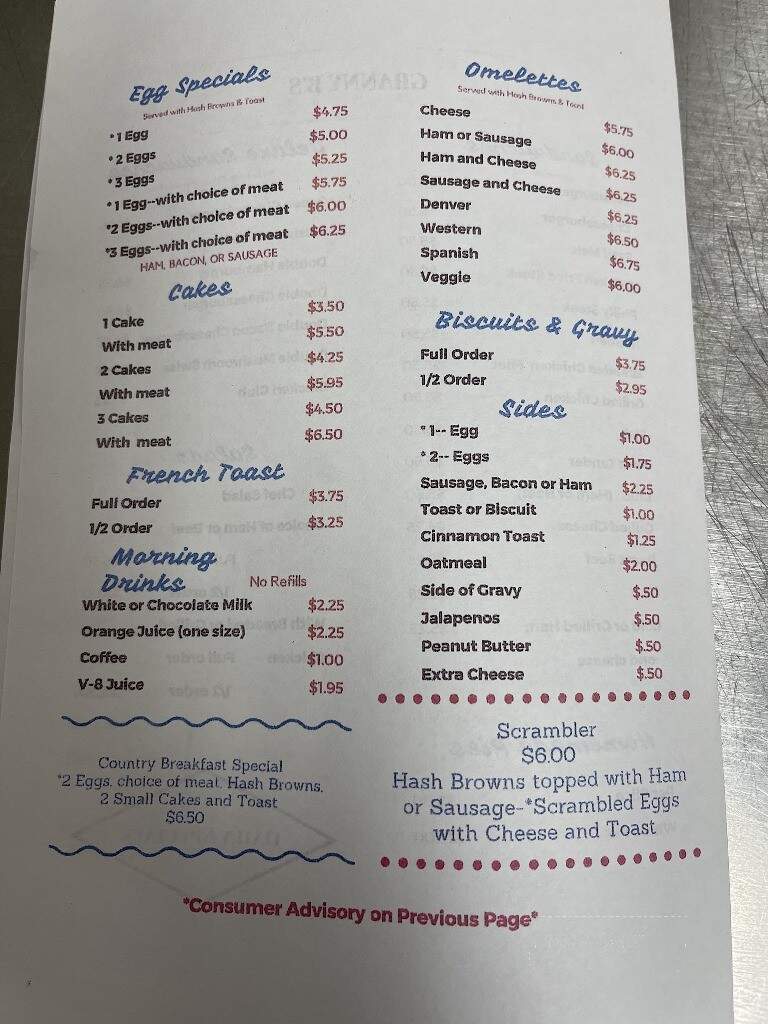 Egg Specials
Served with Hash Browns & Toast
*1 Egg $4.75
*2 Eggs $5.00
*3 Eggs $5.25
*1 Egg--with choice of meat $5.75
*2 Eggs--with choice of meat $6.00
*3 Eggs--with choice of meat $6.25
HAM, BACON, OR SAUSAGE
Cakes
1 Cake $3.50
With meat $5.50
2 Cakes $4.25
With meat $5.95
3 Cakes $4.50
With meat $6.50
French Toast
Full Order $3.75
1/2 Order $3.25
Morning
Drinks No Refills
White or Chocolate Milk $2.25
Orange Juice (one size) $2.25
Coffee $1.00
V-8 Juice $1.95
Country Breakfast Special
*2 Eggs, choice of meat, Hash Browns,
2 Small Cakes and Toast
$6.50
Omelettes
Served with Hash Browns & Toast
Cheese $5.75
Ham or Sausage $6.00
Ham and Cheese $6.25
Sausage and Cheese $6.25
Denver $6.25
Western $6.50
Spanish $6.75
Veggie $6.00
Biscuits & Gravy
Full Order $3.75
1/2 Order $2.95
Sides
*1-- Egg $1.00
*2-- Eggs $1.75
Sausage, Bacon or Ham $2.25
Toast or Biscuit $1.00
Cinnamon Toast $1.25
Oatmeal $2.00
Side of Gravy $.50
Jalapenos $.50
Peanut Butter $.50
Extra Cheese $.50
Scrambler
$6.00
Hash Browns topped with Ham
or Sausage-*Scrambled Eggs
with Cheese and Toast
*Consumer Advisory on Previous Page*